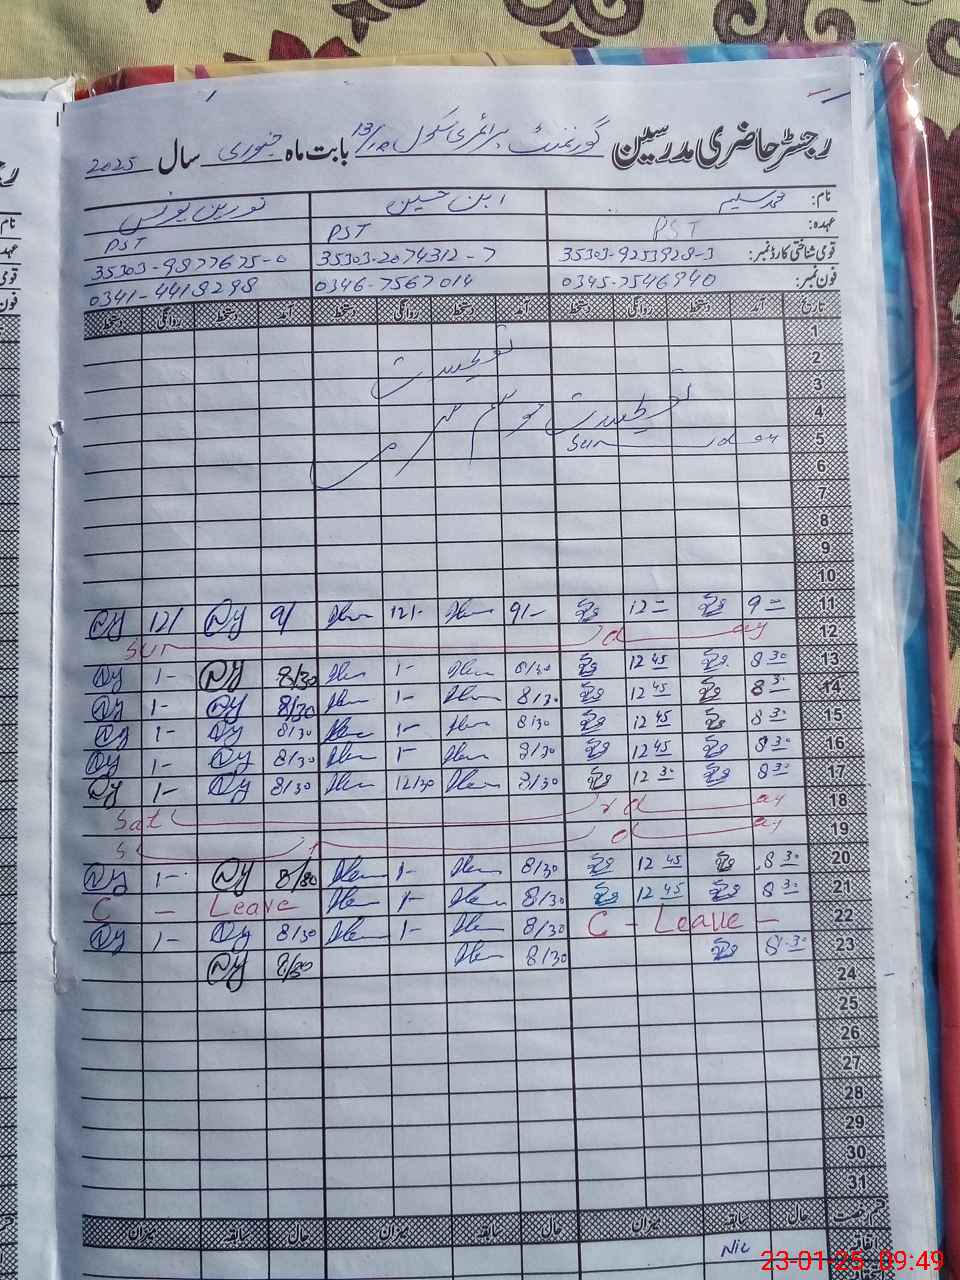 رجسٹر حاضری مدرسین گورنمنٹ پرائمری سکول 13/1R بابت ماہ جنوری سال 2025
نام: محمد سلیم ابن حسین نورین یونس
عہدہ: PST PST PST
قومی شناختی کارڈ نمبر: 35303-9253928-3 35303-2074312-7 35303-9877675-0
فون نمبر: 0345-7546940 0346-7567014 0341-4418298
تاریخ آمد دستخط روانگی دستخط آمد دستخط روانگی دستخط آمد دستخط روانگی دستخط
1
2 تعطیلات
3
4 تعطیلات موسم سرما
5 Sunday
6
7
8
9
10
11 9 00 12 00 9/- 12/- 9/ 12/
12 Sunday
13 8 30 12 45 8/30 1- 8/30 1-
14 8 30 12 45 8/30 1- 8/30 1-
15 8 30 12 45 8/30 1- 8/30 1-
16 8 30 12 45 8/30 1- 8/30 1-
17 8 30 12 30 8/30 12/30 8/30 1-
18 Satrday
19 S day
20 8 30 12 45 8/30 1- 8/30 1-
21 8 30 12 45 8/30 1- C - Leave
22 C - Leave - 8/30 1- 8/30 1-
23 8 30 8/30 8/30
24
25
26
27
28
29
30
31
قسم رخصت حال سابقہ میزان حال سابقہ میزان حال سابقہ میزان
اتفاقیہ Nil
23-01-25 09:49